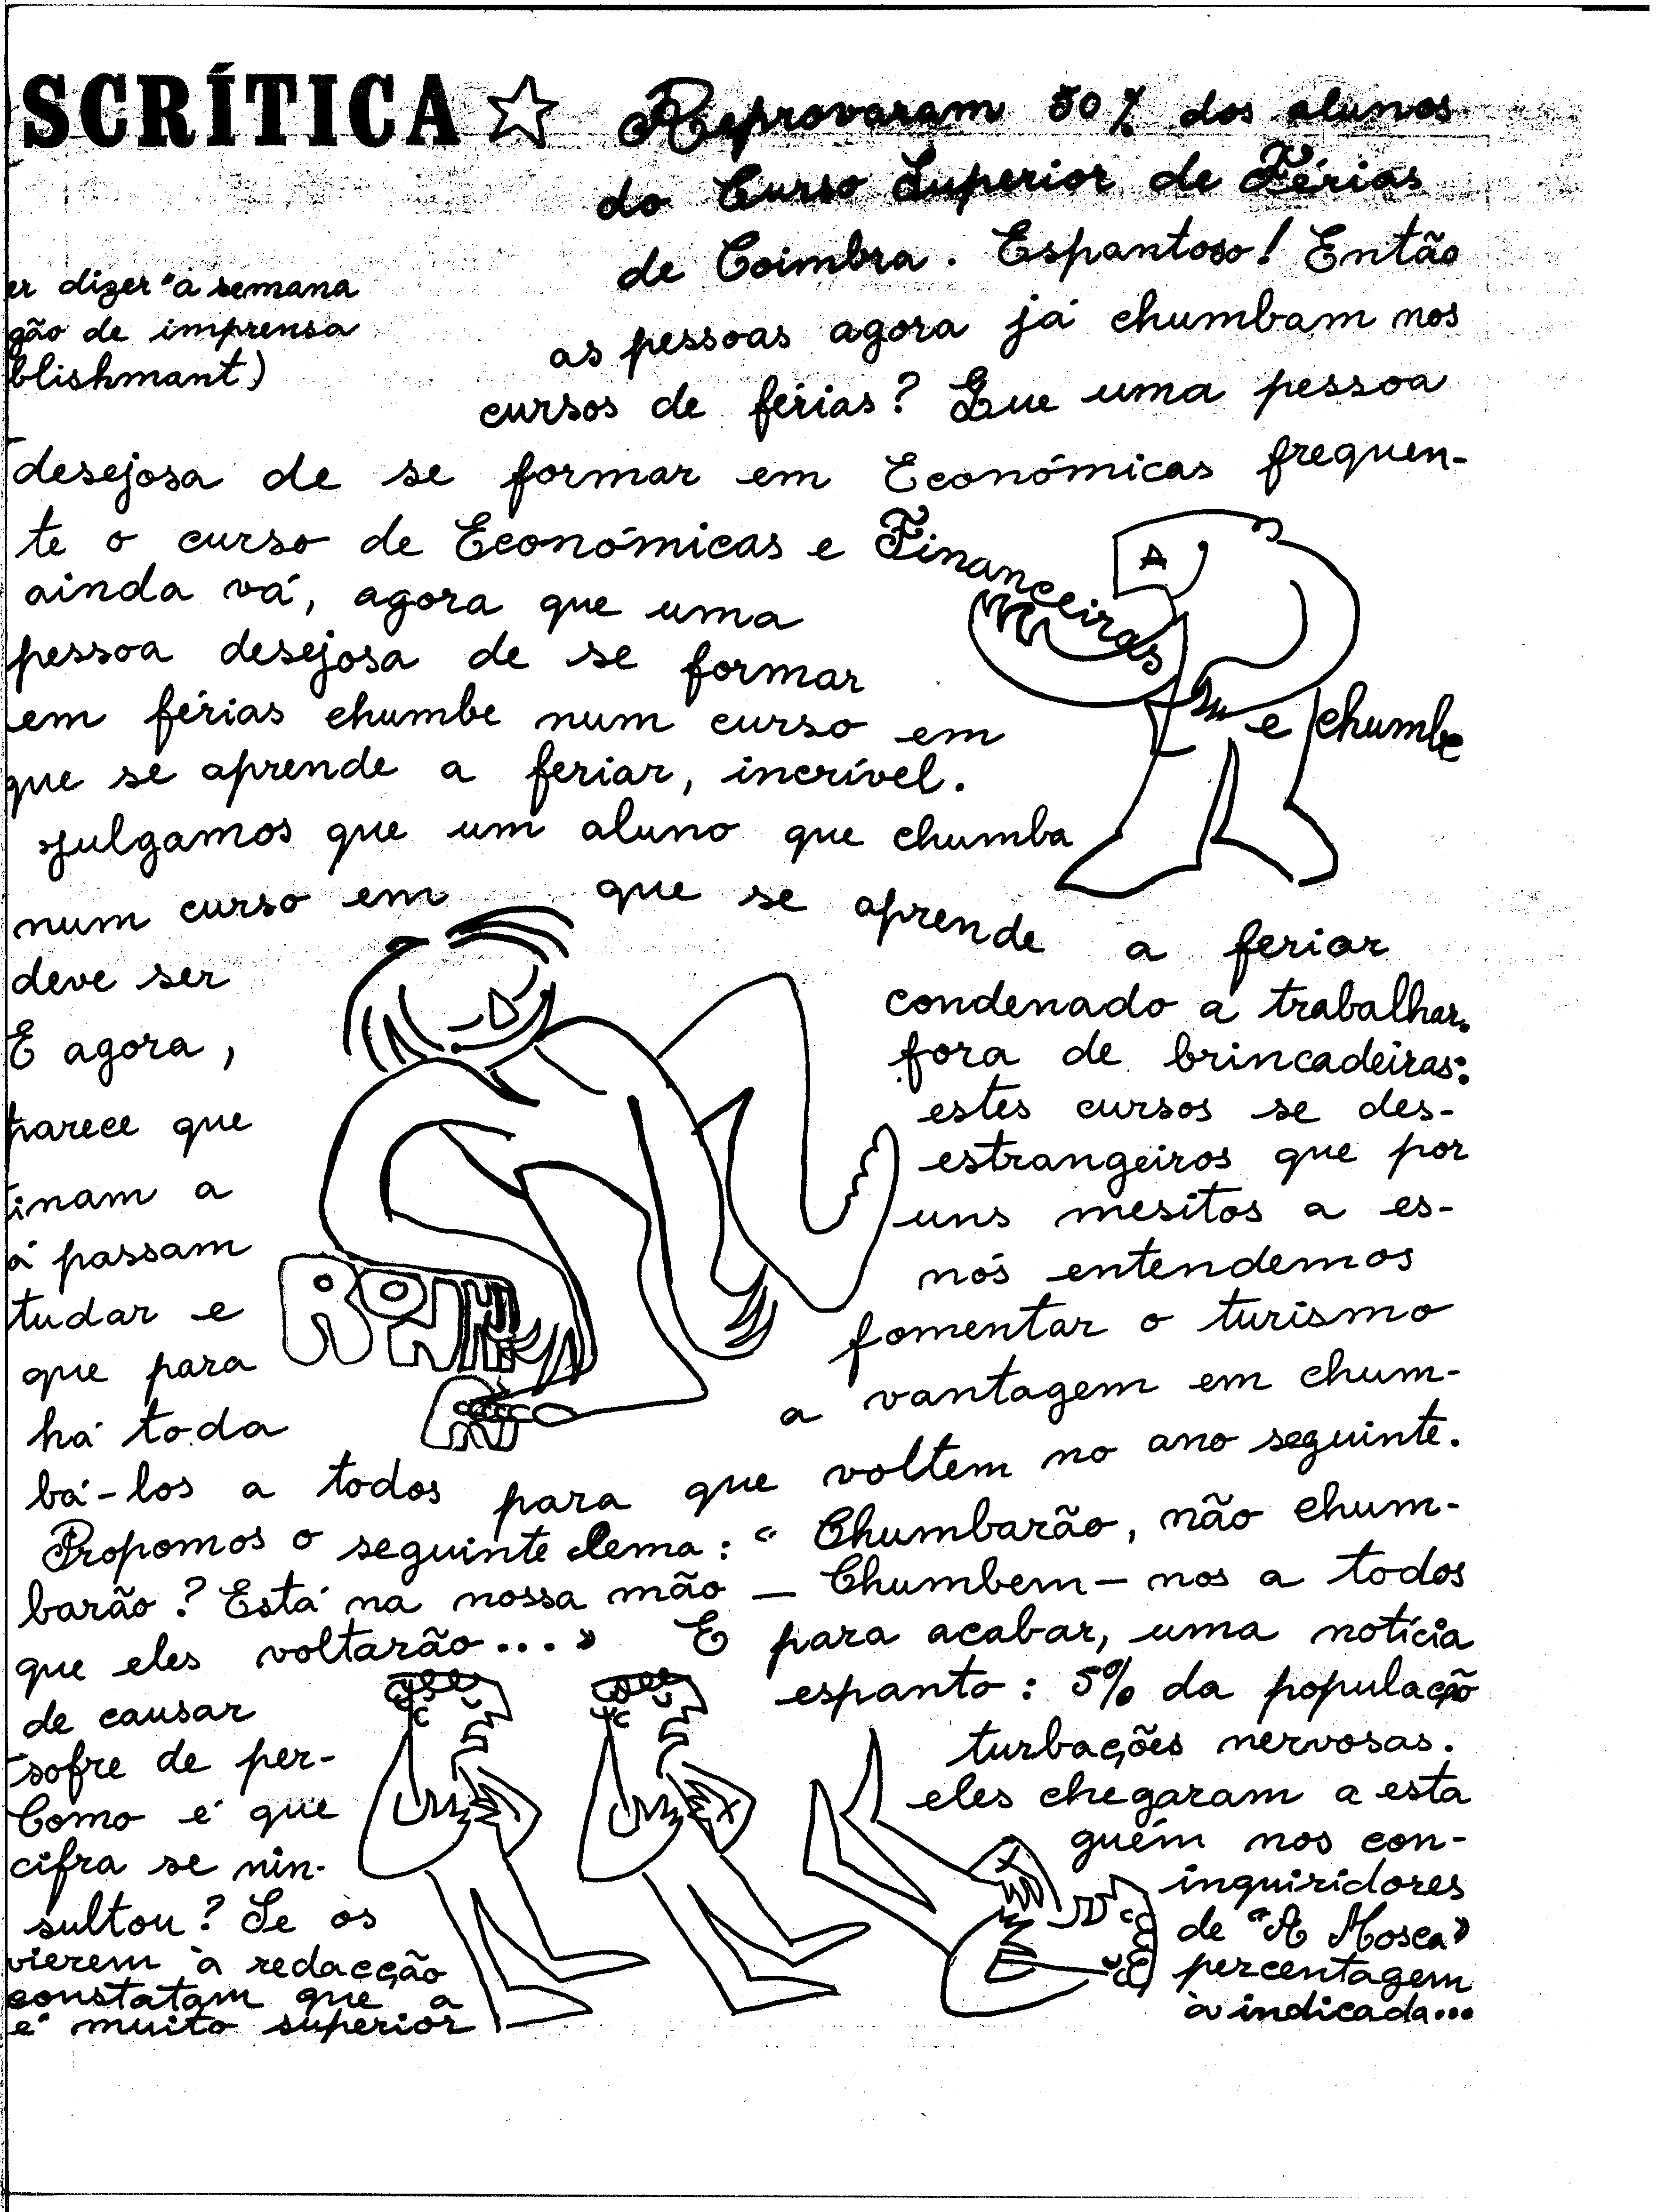 SCRÍTICA ☆ Reprovaram 50% dos alunos
do Curso Superior de Férias
de Coimbra. Espantoso! Então
er dizer "a semana
gão de imprensa
blishmant)
as pessoas agora já chumbam nos
cursos de férias? Que uma pessoa
desejosa de se formar em Económicas frequen-
te o curso de Económicas e Financeiras
e chumbe
ainda vá, agora que uma
pessoa desejosa de se formar
em férias chumbe num curso em
que se aprende a feriar, incrível.
Julgamos que um aluno que chumba
num curso em que se aprende a feriar
deve ser condenado a trabalhar.
E agora, fora de brincadeiras:
parece que estes cursos se des-
inam a estrangeiros que por
á passam uns mesitos a es-
tudar e nós entendemos
que para fomentar o turismo
há toda a vantagem em chum-
bá-los a todos para que voltem no ano seguinte.
Propomos o seguinte lema: « Chumbarão, não chum-
barão? Está na nossa mão — Chumbem-nos a todos
que eles voltarão...» E para acabar, uma notícia
de causar espanto: 5% da população
sofre de per- turbações nervosas.
Como é que eles chegaram a esta
cifra se nin- guém nos con-
sultou? Se os inquiridores
vierem à redacção de "A Mosca»
constatam que a percentagem
é muito superior à indicada...